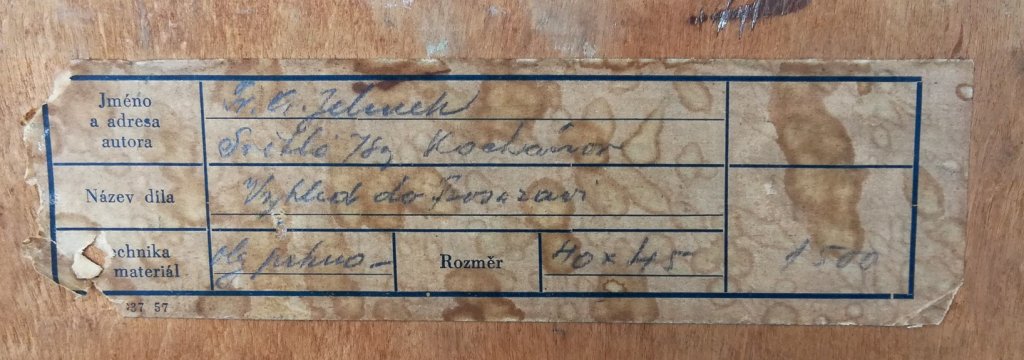 Jméno
a adresa
autora
Fr. A. Jelinek
Světlá Kochánov
Název díla
Vyhled do Posázaví
echnika
materiál
Rozměr
40 x 45
1500
37 57